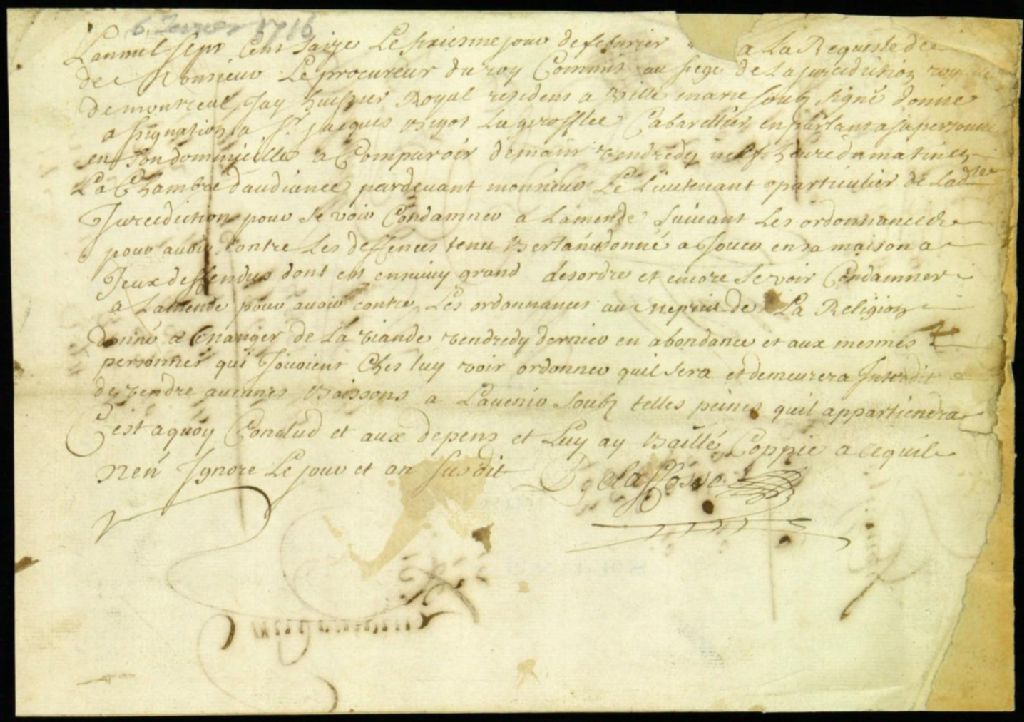 6 fevrier 1716
Lan mil sept Cent Saize Le sixiesme jour de fevrier a La Requeste de
de Monsieur Le procureur du roy Commis au siege de La juridiction royalle
de montreal Jay huissier Royal residens a Ville marie soubz signé donné
assignation a Sr. Jacques Bigot La girofflee Cabarettier en parlant a sa personne
en son dommicille a Comparoir demain vendredy neuf heure du matin en
La Chambre daudiance pardevant monsieur Le Lieutenant particulier de Ladte
Jurediction pour se voir Condamner a Lamende suivant Les ordonnances de
pour avoir Contre Les deffences tenu Berlan donné a Jouer en sa maison a
Jeux deffendus dont est ensuivy grand desordre et encore se voir Condamner
a Lamende pour avoir contre Les ordonnances au mepris de La Religion
donné a manger de La viande vendredy dernier en abondance et aux mesmes
personnes qui Jouoient Ches luy voir ordonner quil sera et demeurera Interdit
de vendre aucunes Boissons a Lavenir soubz telles peines quil appartiendra
Cest a quoy Conclud et aux depens et Luy ay Baillé Coppie a ce quil
nen Ignore Le jour et an susdit Delafosse